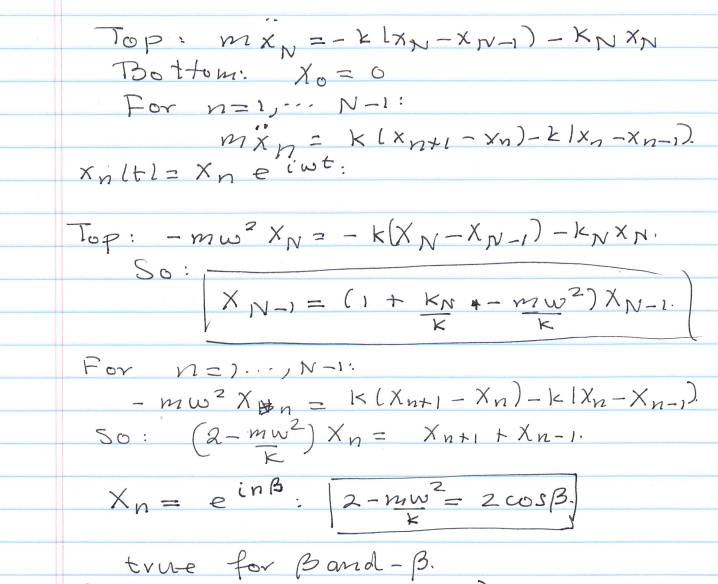 Top: mẍ_N = -k(x_N - x_{N-1}) - k_N x_N
Bottom: x_0 = 0
For n=1,... N-1:
mẍ_n = k(x_{n+1} - x_n) - k(x_n - x_{n-1}).
x_n(t) = X_n e^{iwt}:
Top: -mw² X_N = -k(X_N - X_{N-1}) - k_N X_N.
So:
X_{N-1} = (1 + k_N/k - mw²/k) X_{N-1}.
For n=1..., N-1:
-mw² X_n = k(X_{n+1} - X_n) - k(X_n - X_{n-1}).
So: (2 - mw²/k) X_n = X_{n+1} + X_{n-1}.
X_n = e^{inβ}: 2 - mw²/k = 2cosβ.
true for β and -β.